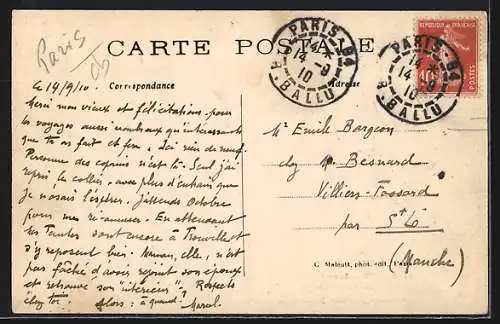 Paris
CARTE POSTALE
Correspondance
Adresse
PARIS 84
14 -9
10
R. BALLU
PARIS 84
14 -9
10
R. BALLU
REPUBLIQUE FRANÇAISE
10
POSTES
Ce 14/9/10.
Merci mon vieux et félicitations pour
tes voyages aussi nombreux qu'intéressants
que tu as fait et fera. Ici rien de neuf.
Personne des copains n'est là. Seul j'ai
repris le collier, avec plus d'entrain que
je n'osais l'espérer. J'attends Octobre
pour mes ré-amuser. En attendant
les Tantes sont encore à Trouville et
s'y reposent bien. Maman, elle, n'est
pas fâchée d'avoir rejoint son époux
et retrouvé son "intérieur". Respects
chez toi. Alors : à quand? Marcel.
Mr Emile Bargeon
chez Mr Besnard
Villiers-Fossard
par St Lô
(Manche)
C. Malcuit, phot. édit.